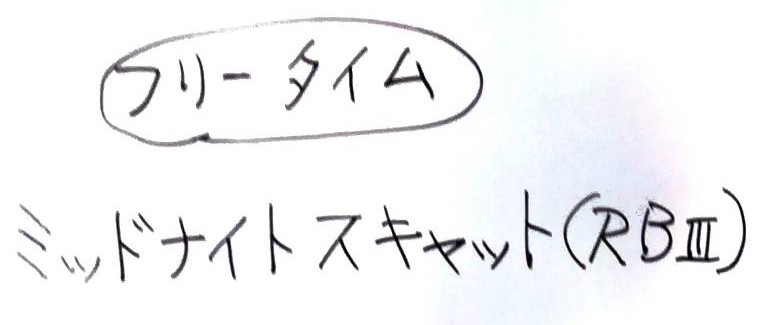 フリータイム
ミッドナイトスキャット(RBⅢ)